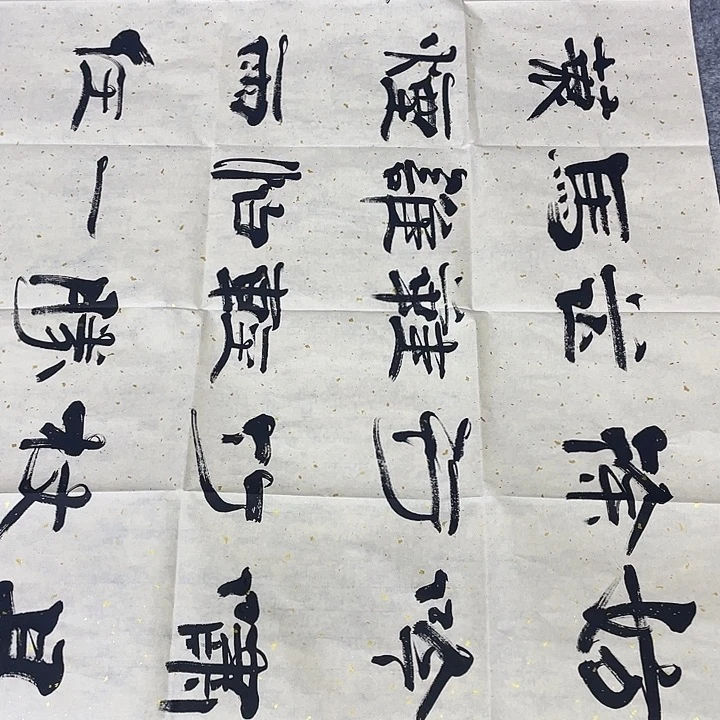 妨吟嘯且
徐行竹杖
芒鞋輕勝
馬誰怕一
蓑煙雨任